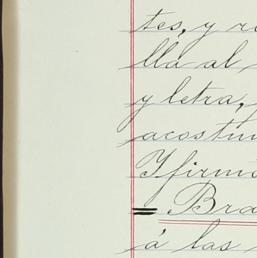 tes, y
llá al
y letra,
acostum
Y firmó
= Bra
á las